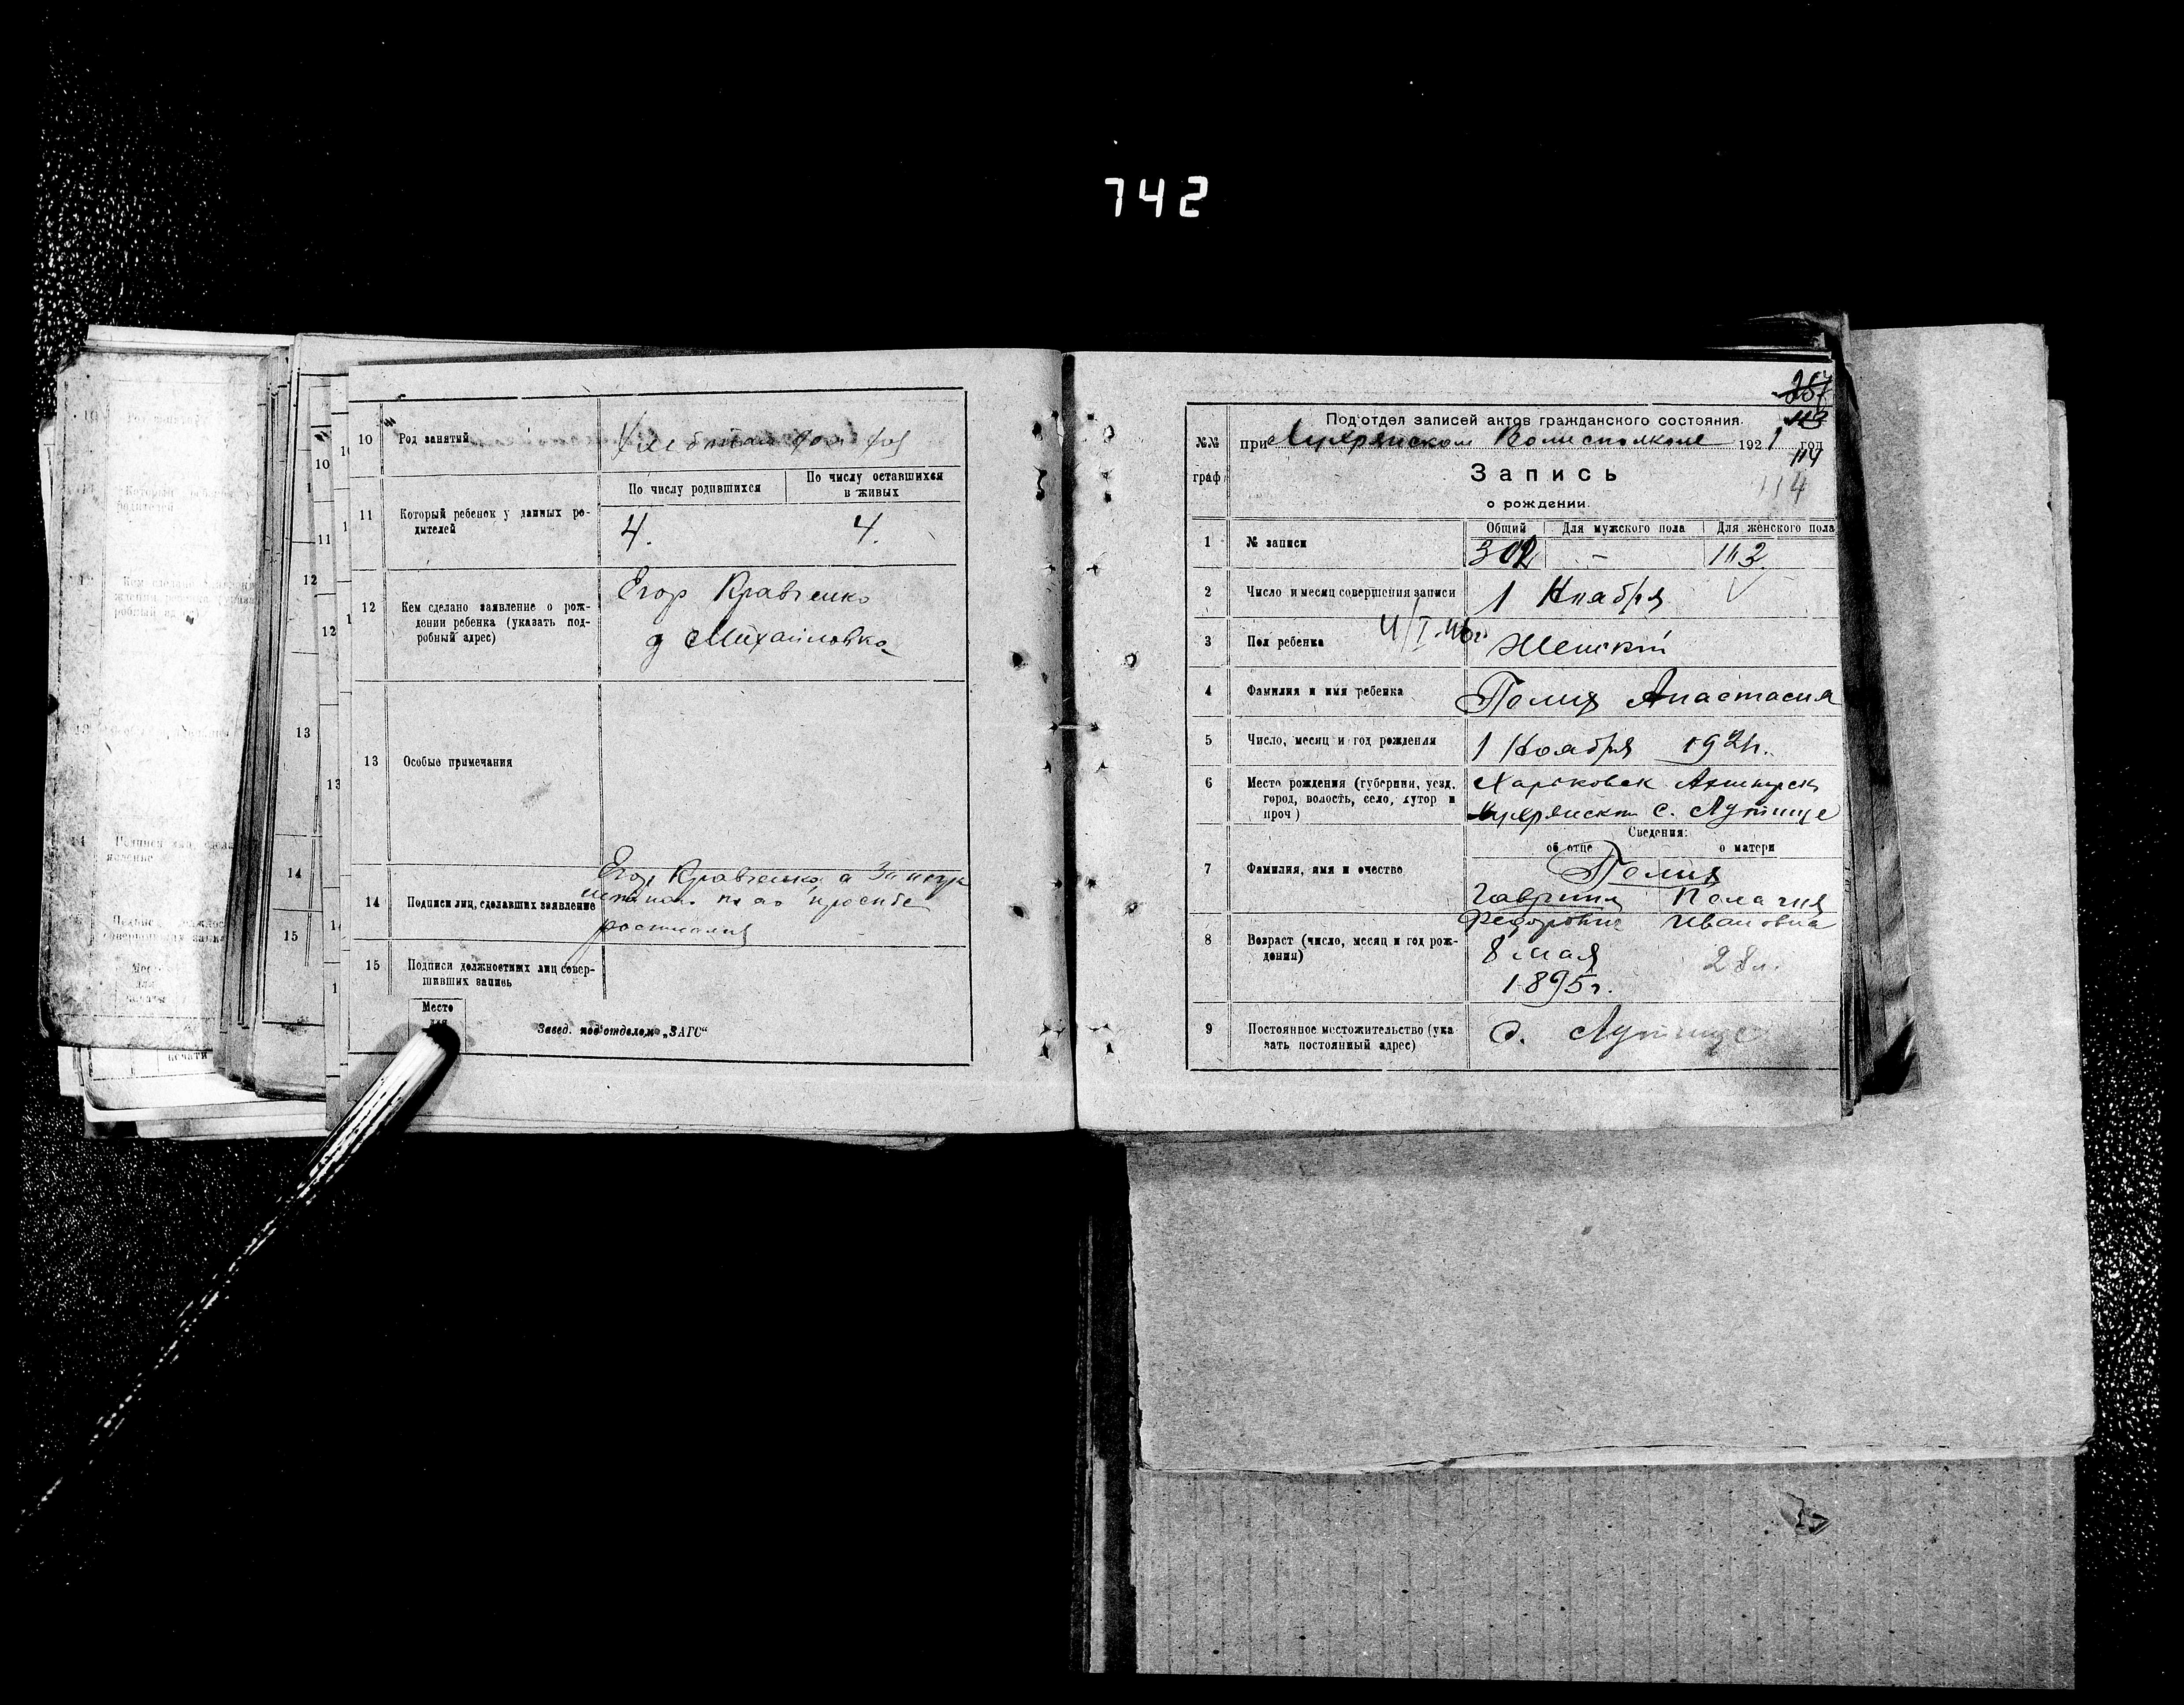 742
10 Род занятий
11 Который ребенок у данных ро-
дителей
По числу родившихся
По числу оставшихся
в живых
4.
4.
12 Кем сделано заявление о рож-
дении ребенка (указать под-
робный адрес)
Егор Кравченко
д Михайловка
13 Особые примечания
14 Подписи лиц, сделавших заявление
Егор Кравченко а за негр
по его просьбе
15 Подписи должностных лиц совер-
шивших запись
Место
для
Завед. под'отделом „ЗАГС“
10
11
12
13
14
15
267
113
Под'отдел записей актов гражданского состояния.
№№
граф
при Волисполкоме 1921 год
114
Запись
114
о рождении.
1 № записи
Общий
Для мужского пола
Для женского пола
302
-
113
2 Число и месяц совершения записи
1 Ноября
3 Пол ребенка
Женский
4 Фамилия и имя ребенка
Анастасия
5 Число, месяц и год рождения
1 Ноября 1921г.
6 Место рождения (губерния, уезд,
город, волость, село, хутор и
проч)
Харьковск Ахтырск
с. Лутище
Сведения:
об отце
о матери
7 Фамилия, имя и очество
Гавриил
Пелагия
Федорович
Ивановна
8 Возраст (число, месяц и год рож-
дения)
8 мая
1895г.
28л.
9 Постоянное местожительство (ука
зать постоянный адрес)
с. Лутище